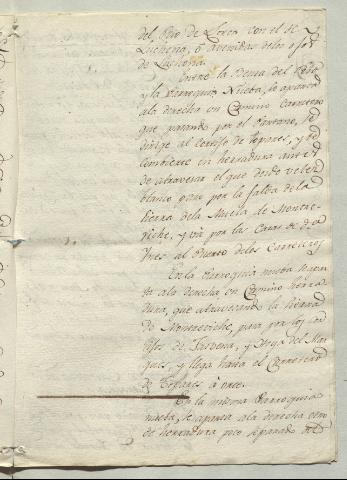 del Rio de Lorca con el de
Luchena, ó Avenidas de los ojos
de Luchena.
Entre la Venta del
y la Parroquia Nueba, se aparta
ala derecha un Camino Carretero
que pasando por el Pantano, se
dirige al Cortijo de Topares, y se
combierte en herradura antes
de atravesar el que desde Velez
blanco pasa por la falda de la
Sierra dela Muela de Montre-
viche, y vá por las Casas de D.ª
Ynes al Puerto delos Carreteros
En la Parroquia nueba se apar-
ta ala derecha un Camino herra-
dura, que atravesando la Sierra
de Montreviche, pasa por los Cor-
tijos de, y Vega del Mar-
ques, y llega hasta el Carretero
de Topares á
En la misma Parroquia
nueba, se aparta ala derecha otro
de herradura poco separado del